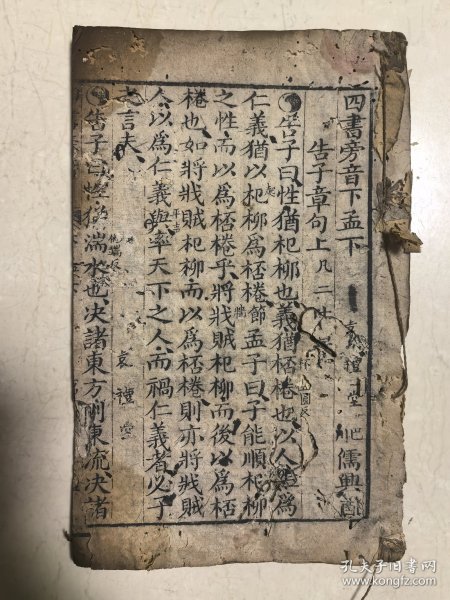 四書旁音下孟下
告子章句上凡二十
告子曰性猶杞柳也義猶桮棬也以人性為
仁義猶以杞柳為桮棬節孟子曰子能順杞柳
之性而以為桮棬乎將戕賊杞柳而後以為桮
棬也如將戕賊杞柳而以為桮棬則亦將戕賊
人以為仁義與率天下之人而禍仁義者必子
之言夫
告子曰性猶湍水也決諸東方則東流決諸
孔夫子旧书网
www.kongfz.com